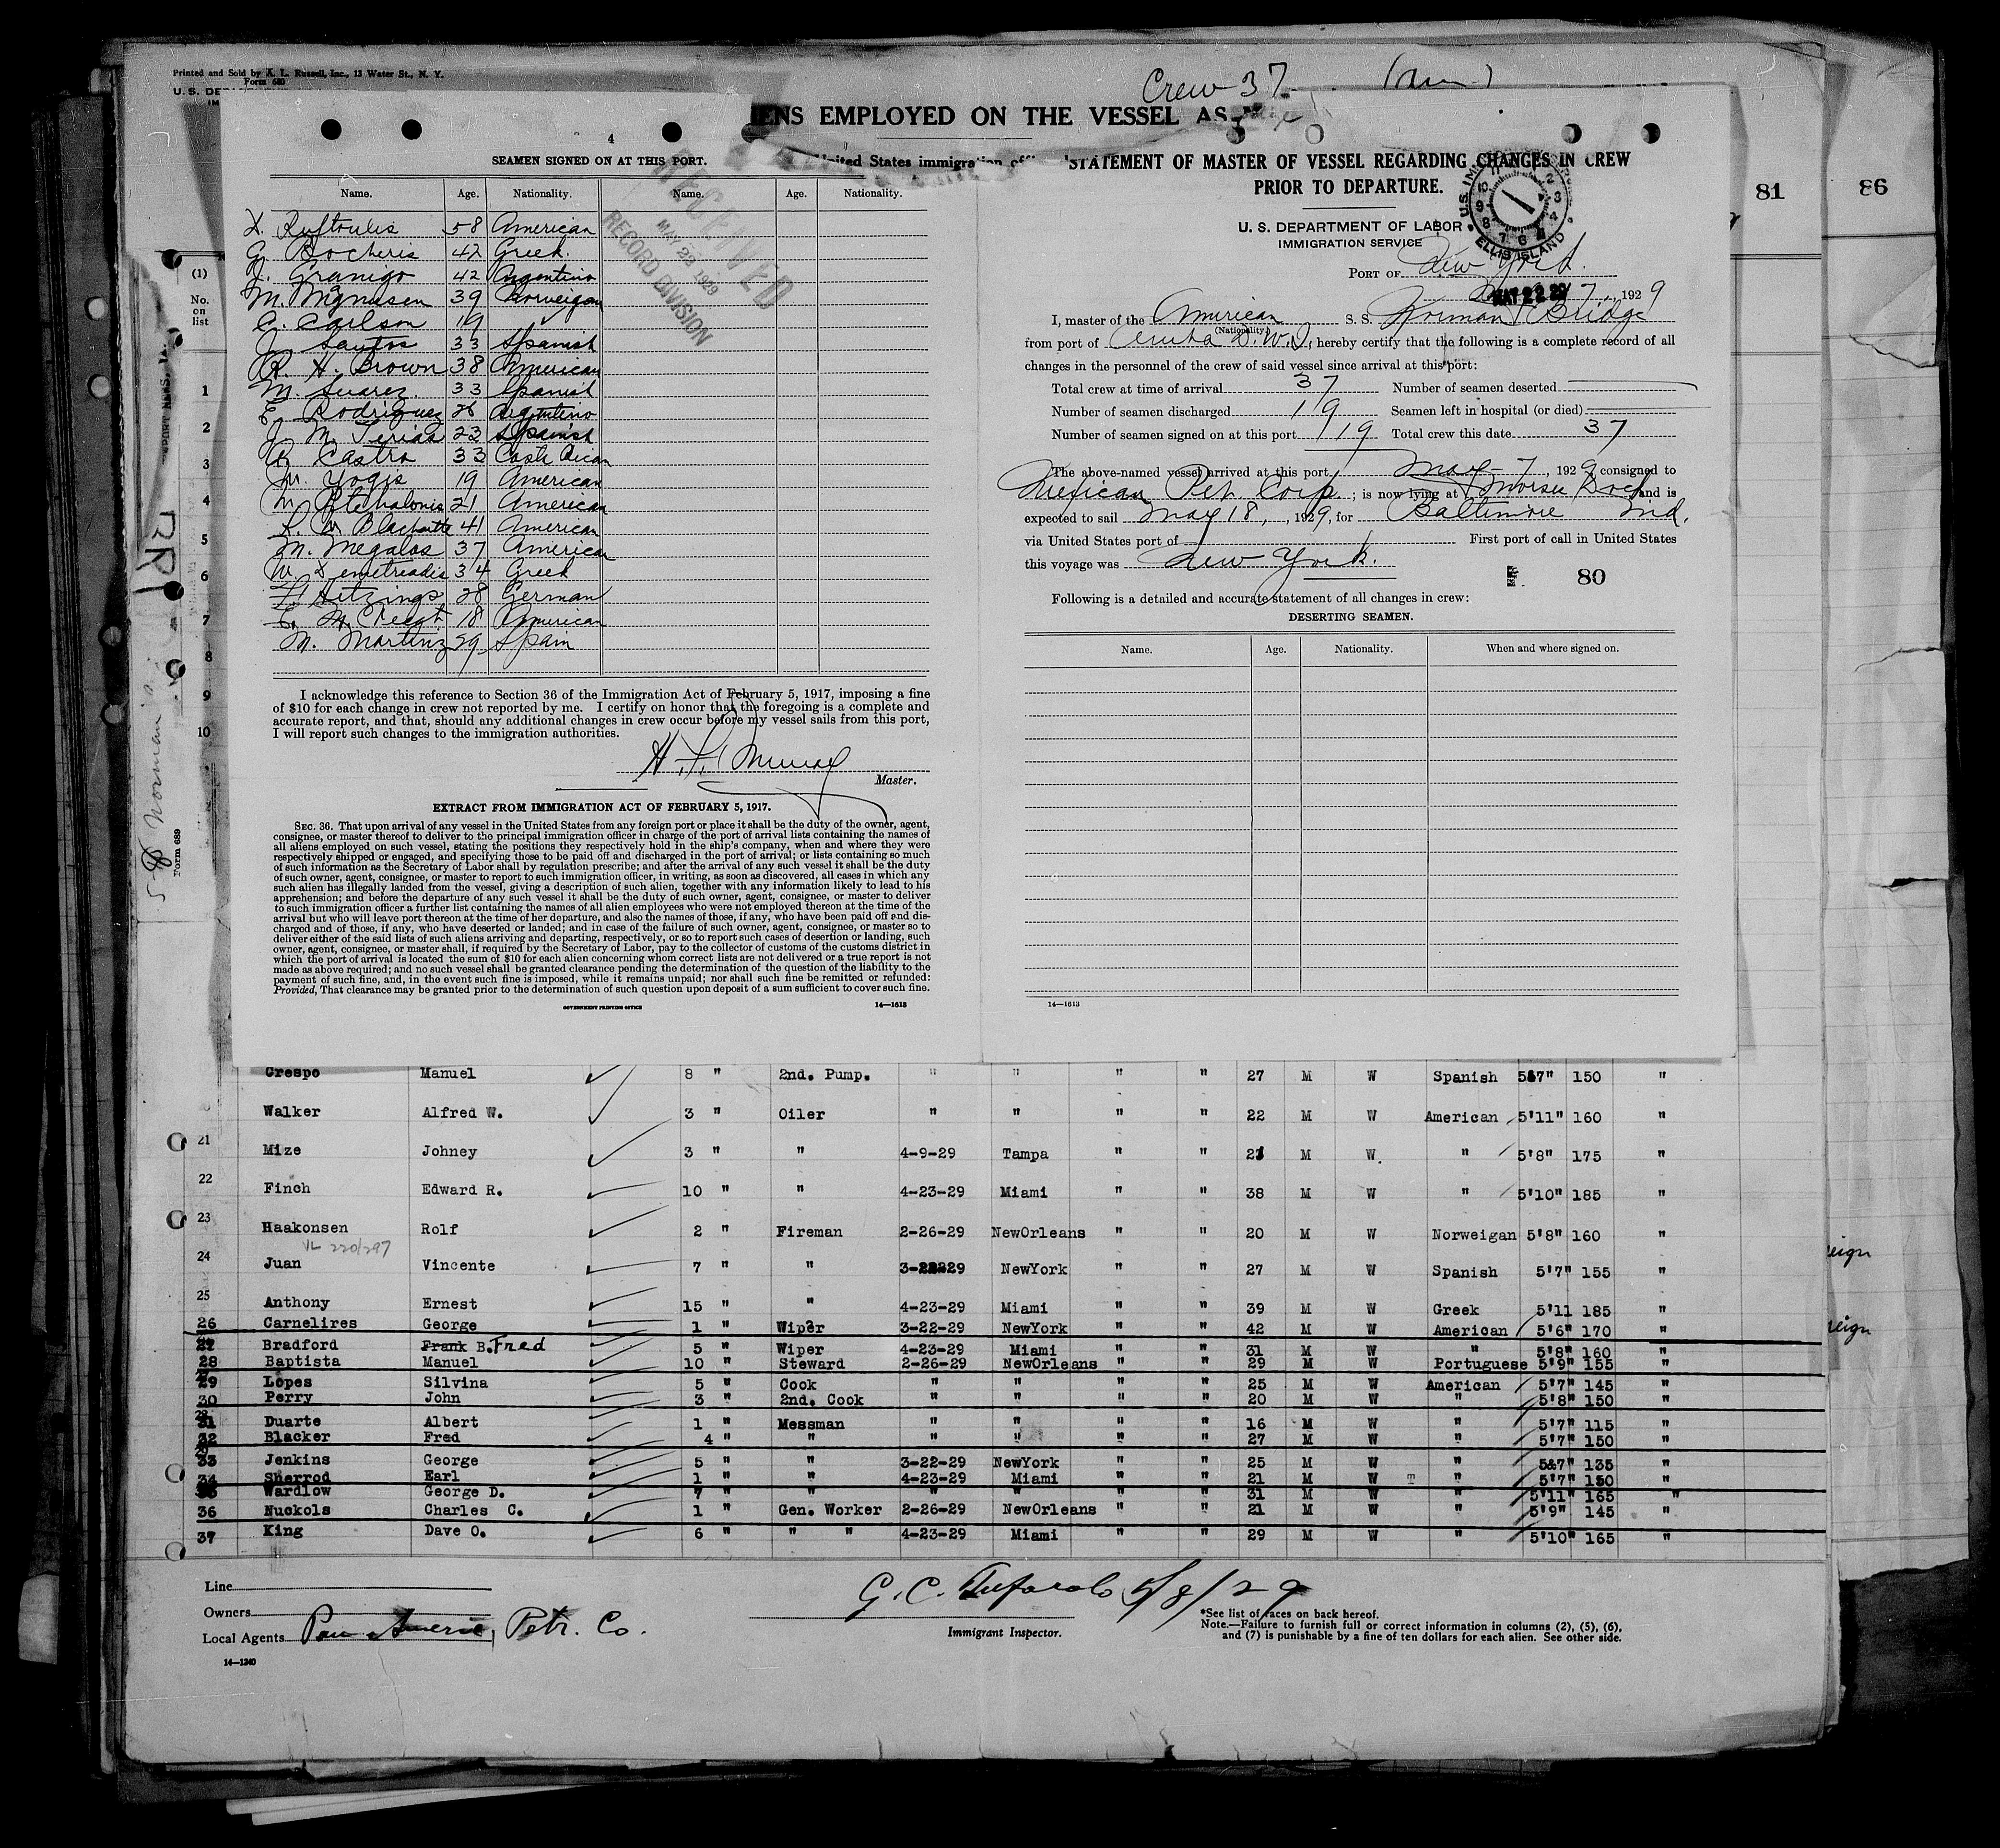 Printed and Sold by A. L. Russell, Inc., 13 Water St., N. Y.
Form 680
U. S. DE
IM
Crew 37
IENS EMPLOYED ON THE VESSEL AS
United States immigration
81
86
(1)
No.
on
list
1
2
3
4
5
6
7
8
9
10
Form 689
4
SEAMEN SIGNED ON AT THIS PORT.
Name. Age. Nationality. Name. Age. Nationality.
RECEIVED
MAY 22 1929
RECORD DIVISION
58 American
G. Bocheris 42 Greek.
J. Granigo 42 Argentino
M. Magnusen 39 Norweigan
C. Carlson 19 "
J. Santos 33 Spanish
R. H. Brown 38 American
M. Suarez 33 Spanish
E. Rodriguez 26 Argentino
J. M. 23 Spanish
R. Castro 33 Costa Rican
M. Yogis 19 American
M. 21 American
41 American
M. Megalos 37 American
W. Demetreadis 34 Greek
H. Hetzings 28 German
18 American
M. Martinz 29 Spain
I acknowledge this reference to Section 36 of the Immigration Act of February 5, 1917, imposing a fine
of $10 for each change in crew not reported by me. I certify on honor that the foregoing is a complete and
accurate report, and that, should any additional changes in crew occur before my vessel sails from this port,
I will report such changes to the immigration authorities.
H. F. Murray
Master.
EXTRACT FROM IMMIGRATION ACT OF FEBRUARY 5, 1917.
SEC. 36. That upon arrival of any vessel in the United States from any foreign port or place it shall be the duty of the owner, agent,
consignee, or master thereof to deliver to the principal immigration officer in charge of the port of arrival lists containing the names of
all aliens employed on such vessel, stating the positions they respectively hold in the ship's company, when and where they were
respectively shipped or engaged, and specifying those to be paid off and discharged in the port of arrival; or lists containing so much
of such information as the Secretary of Labor shall by regulation prescribe; and after the arrival of any such vessel it shall be the duty
of such owner, agent, consignee, or master to report to such immigration officer, in writing, as soon as discovered, all cases in which any
such alien has illegally landed from the vessel, giving a description of such alien, together with any information likely to lead to his
apprehension; and before the departure of any such vessel it shall be the duty of such owner, agent, consignee, or master to deliver
to such immigration officer a further list containing the names of all alien employees who were not employed thereon at the time of the
arrival but who will leave port thereon at the time of her departure, and also the names of those, if any, who have been paid off and dis-
charged and of those, if any, who have deserted or landed; and in case of the failure of such owner, agent, consignee, or master so to
deliver either of the said lists of such aliens arriving and departing, respectively, or so to report such cases of desertion or landing, such
owner, agent, consignee, or master shall, if required by the Secretary of Labor, pay to the collector of customs of the customs district in
which the port of arrival is located the sum of $10 for each alien concerning whom correct lists are not delivered or a true report is not
made as above required; and no such vessel shall be granted clearance pending the determination of the question of the liability to the
payment of such fine, and, in the event such fine is imposed, while it remains unpaid; nor shall such fine be remitted or refunded:
Provided, That clearance may be granted prior to the determination of such question upon deposit of a sum sufficient to cover such fine.
GOVERNMENT PRINTING OFFICE 14—1613
STATEMENT OF MASTER OF VESSEL REGARDING CHANGES IN CREW
PRIOR TO DEPARTURE.
U. S. DEPARTMENT OF LABOR
IMMIGRATION SERVICE
ELLIS ISLAND
PORT OF New York.
MAY 22 29 7, 1929
I, master of the American S. S. Norman Bridge
(Nationality.)
from port of Aruba D.W.I, hereby certify that the following is a complete record of all
changes in the personnel of the crew of said vessel since arrival at this port:
Total crew at time of arrival 37 Number of seamen deserted
Number of seamen discharged 19 Seamen left in hospital (or died)
Number of seamen signed on at this port 19 Total crew this date 37
The above-named vessel arrived at this port May-7, 1929 consigned to
Mexican Pet. Corp. ; is now lying at Morse Dock and is
expected to sail May 18, , 1929, for Baltimore Md.
via United States port of First port of call in United States
this voyage was New York.
80
Following is a detailed and accurate statement of all changes in crew:
DESERTING SEAMEN.
Name. Age. Nationality. When and where signed on.
14—1613
Crespo Manuel 8 " 2nd. Pump. " " " " 27 M W Spanish 5'7" 150 "
Walker Alfred W. 3 " Oiler " " " " 22 M W American 5'11" 160 "
21 Mize Johney 3 " " 4-9-29 Tampa " " 21 M W. " 5'8" 175 "
22 Finch Edward R. 10 " " 4-23-29 Miami " " 38 M W " 5'10" 185 "
23 Haakonsen Rolf 2 " Fireman 2-26-29 NewOrleans " " 20 M W Norweigan 5'8" 160 "
VL 220/297
24 Juan Vincente 7 " " 3-22-29 NewYork " " 27 M W Spanish 5'7" 155 "
25 Anthony Ernest 15 " " 4-23-29 Miami " " 39 M W Greek 5'11 185 "
26 Carnelires George 1 " Wiper 3-22-29 NewYork " " 42 M W American 5'6" 170 "
27 Bradford Frank B. Fred 5 " Wiper 4-23-29 Miami " " 31 M W " 5'8" 160 "
28 Baptista Manuel 10 " Steward 2-26-29 NewOrleans " " 29 M W Portuguese 5'9" 155 "
29 Lopes Silvina 5 " Cook " " " " 25 M W American 5'7" 145 "
30 Perry John 3 " 2nd. Cook " " " " 20 M W " 5'8" 150 "
31 Duarte Albert 1 " Messman " " " " 16 M W " 5'7" 115 "
32 Blacker Fred 4 " " " " " " 27 M W " 5'7" 150 "
33 Jenkins George 5 " " 3-22-29 NewYork " " 25 M W " 5&7" 135 "
34 Sherrod Earl 1 " " 4-23-29 Miami " " 21 M W T " 5'7" 150 "
35 Wardlow George D. 7 " " " " " " 31 M W " 5'11" 165 "
36 Nuckols Charles C. 1 " Gen. Worker 2-26-29 NewOrleans " " 21 M W " 5'9" 145 "
37 King Dave O. 6 " " " 4-23-29 Miami " " 29 M W " 5'10" 165 "
eign
eign
Line
Owners
Local Agents Pan Americ, Petr. Co.
14—1240
G. C. 5/8/29
Immigrant Inspector.
*See list of races on back hereof.
Note.—Failure to furnish full or correct information in columns (2), (5), (6),
and (7) is punishable by a fine of ten dollars for each alien. See other side.